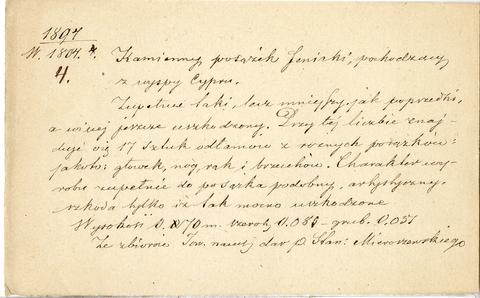 1897
N. 1804. 4.
4.
Kamienny posążek fenicki, pochodzący
z wyspy Cypru.
Zupełnie taki, lecz mniejszy, jak poprzedni,
a więcej jeszcze uszkodzony. Przy tej liczbie znaj-
duje się 17 sztuk odłamów z różnych posążków:
jakoto: główek, nóg, rąk i brzuchów. Charakter wy-
robu zupełnie do posążka podobny, artystyczny,
szkoda tylko iż tak mocno uszkodzone
Wysokość 0.170 m. szerok. 0.085 – grub. 0.051
Ze zbiorów Tow. nauk dar p. Stan: Mieroszewskiego